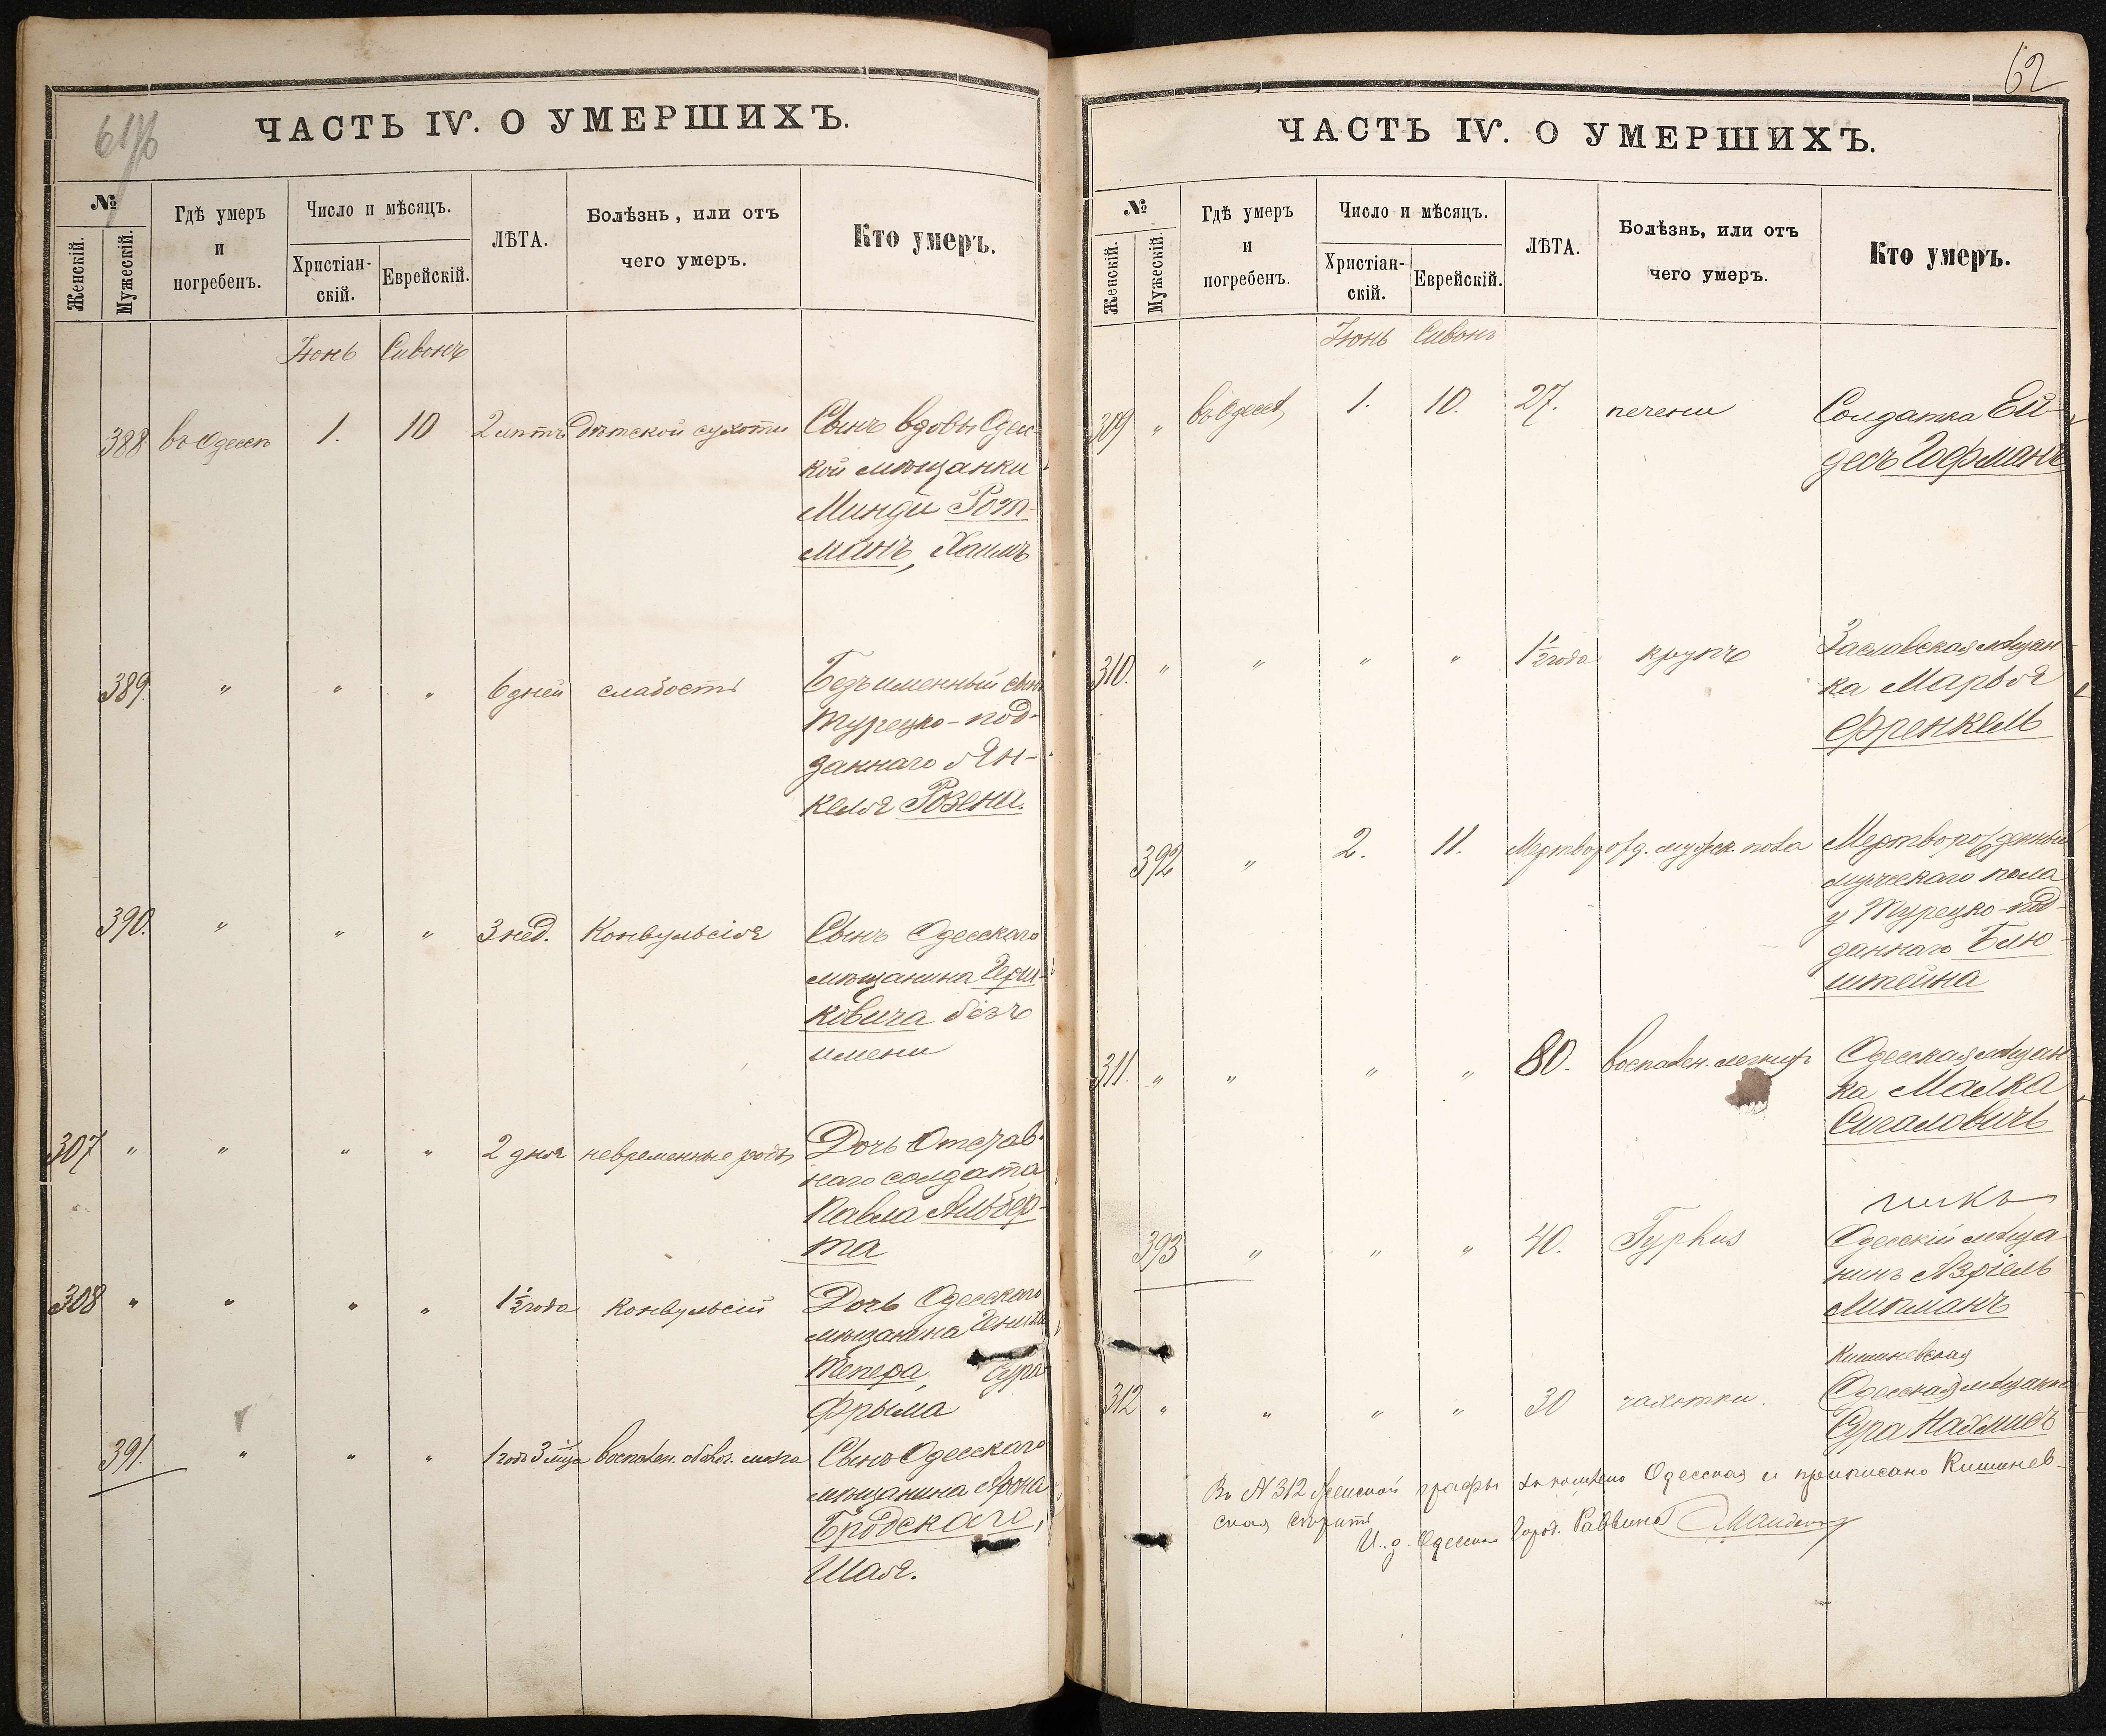 61/б
ЧАСТЬ IV. О УМЕРШИХЪ.
№
Женскій.
Мужескій.
Гдѣ умеръ
и
погребенъ.
Число и мѣсяцъ.
Христіан-
скій.
Еврейскій.
ЛѢТА.
Болѣзнь, или отъ
чего умеръ.
Кто умеръ.
Іюнь Сивонъ
388 въ Одессѣ 1. 10 2 лѣтъ Дѣтской сухоти Сынъ вдовы Одес-
кой мѣщанки
Минди Рот-
манъ, Хаимъ
389. " " " 6 дней слабость Безъименный сынъ
турецко-под-
даннаго Ян-
келя Розена.
390. " " " 3 нед. Конвульсія Сынъ Одесскаго
мѣщанина Герш-
ковича безъ
имени
307 " " " " 2 дня невременные роды Дочь Отстав-
наго солдата
Павла Альбер-
та
308 " " " " 1½ года Конвульсій Дочь Одесскаго
мѣщанина
Тепера, Сура
Фрыма
391. " " " 1 годъ 3 мца воспален. оболоч. мозга Сынъ Одесскаго
мѣщанина Арона
Бродскаго,
Шая.
62
ЧАСТЬ IV. О УМЕРШИХЪ.
№
Женскій.
Мужескій.
Гдѣ умеръ
и
погребенъ.
Число и мѣсяцъ.
Христіан-
скій.
Еврейскій.
ЛѢТА.
Болѣзнь, или отъ
чего умеръ.
Кто умеръ.
Іюнь Сивонъ
309 " въ Одессѣ 1. 10. 27. печени Солдатка Ей-
десъ Гофманъ
310. " " " " 1½ года крупъ Заславская мѣщан-
ка Марья
Френкель
392 " 2. 11. Мертворожд. мужск. пола Мертворожденный
мужескаго пола
у Турецко-под-
даннаго Блю-
штейна
311. " " " " 80. воспален. легкихъ Одесская мѣщан-
ка Малка
Сигаловичъ
393 " " " 40. Typhus Одесскій мѣща-
нинъ Азріель
Липманъ
Кишиневская
312 " " " " 30 чахотки. Одесская мѣщанка
Сура
Въ № 312 женской графы Одесская и приписано Кишинев-
ская
И. д. Одесскаго Город. Раввина